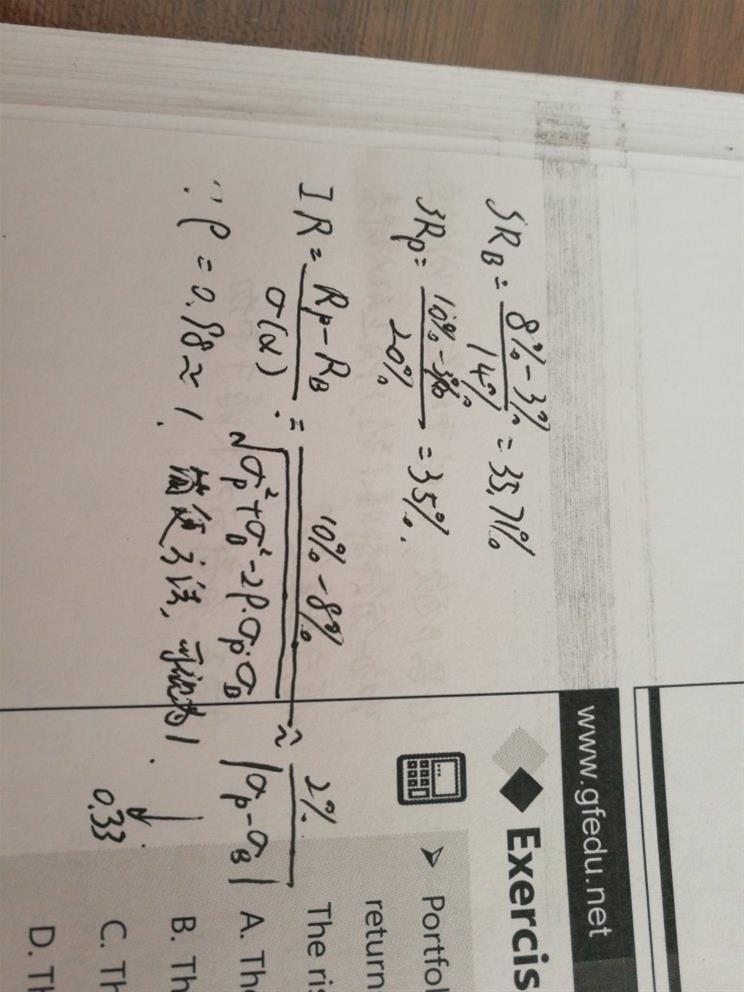 SR_B = (8% - 3%) / 14% = 35.71%
SR_P = (10% - 3%) / 20% = 35%.
IR = (R_P - R_B) / σ(α) = (10% - 8%) / √(σ_P² + σ_B² - 2ρ·σ_P·σ_B) ≈ 2% / |σ_P - σ_B|
∵ ρ = 0.98 ≈ 1, 简便方法, 可视为1. ↓
0.33
www.gfedu.net
Exercis
➢ Portfol
return
The ris
A. The
B. Th
C. Th
D. Th